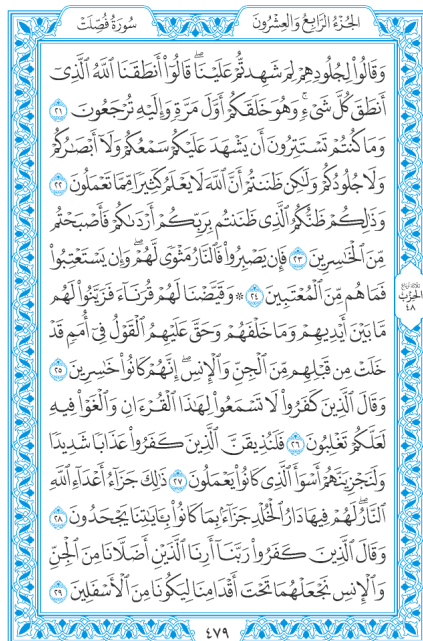 الجزء الرابع والعشرون
سورة فصلت
وَقَالُوا۟ لِجُلُودِهِمْ لِمَ شَهِدتُّمْ عَلَيْنَا ۖ قَالُوٓا۟ أَنطَقَنَا ٱللَّهُ ٱلَّذِىٓ
أَنطَقَ كُلَّ شَىْءٍ ۚ وَهُوَ خَلَقَكُمْ أَوَّلَ مَرَّةٍ وَإِلَيْهِ تُرْجَعُونَ ٢١
وَمَا كُنتُمْ تَسْتَتِرُونَ أَن يَشْهَدَ عَلَيْكُمْ سَمْعُكُمْ وَلَآ أَبْصَٰرُكُمْ
وَلَا جُلُودُكُمْ وَلَٰكِن ظَنَنتُمْ أَنَّ ٱللَّهَ لَا يَعْلَمُ كَثِيرًا مِّمَّا تَعْمَلُونَ ٢٢
وَذَٰلِكُمْ ظَنُّكُمُ ٱلَّذِى ظَنَنتُم بِرَبِّكُمْ أَرْدَىٰكُمْ فَأَصْبَحْتُم
مِّنَ ٱلْخَٰسِرِينَ ٢٣ فَإِن يَصْبِرُوا۟ فَٱلنَّارُ مَثْوًى لَّهُمْ ۖ وَإِن يَسْتَعْتِبُوا۟
فَمَا هُم مِّنَ ٱلْمُعْتَبِينَ ٢٤ ۞ وَقَيَّضْنَا لَهُمْ قُرَنَآءَ فَزَيَّنُوا۟ لَهُم
مَّا بَيْنَ أَيْدِيهِمْ وَمَا خَلْفَهُمْ وَحَقَّ عَلَيْهِمُ ٱلْقَوْلُ فِىٓ أُمَمٍ قَدْ
خَلَتْ مِن قَبْلِهِم مِّنَ ٱلْجِنِّ وَٱلْإِنسِ ۖ إِنَّهُمْ كَانُوا۟ خَٰسِرِينَ ٢٥
وَقَالَ ٱلَّذِينَ كَفَرُوا۟ لَا تَسْمَعُوا۟ لِهَٰذَا ٱلْقُرْءَانِ وَٱلْغَوْا۟ فِيهِ
لَعَلَّكُمْ تَغْلِبُونَ ٢٦ فَلَنُذِيقَنَّ ٱلَّذِينَ كَفَرُوا۟ عَذَابًا شَدِيدًا
وَلَنَجْزِيَنَّهُمْ أَسْوَأَ ٱلَّذِى كَانُوا۟ يَعْمَلُونَ ٢٧ ذَٰلِكَ جَزَآءُ أَعْدَآءِ ٱللَّهِ
ٱلنَّارُ ۖ لَهُمْ فِيهَا دَارُ ٱلْخُلْدِ ۖ جَزَآءًۢ بِمَا كَانُوا۟ بِـَٔايَٰتِنَا يَجْحَدُونَ ٢٨
وَقَالَ ٱلَّذِينَ كَفَرُوا۟ رَبَّنَآ أَرِنَا ٱلَّذَيْنِ أَضَلَّانَا مِنَ ٱلْجِنِّ
وَٱلْإِنسِ نَجْعَلْهُمَا تَحْتَ أَقْدَامِنَا لِيَكُونَا مِنَ ٱلْأَسْفَلِينَ ٢٩
الحزب
٤٨
٤٧٩